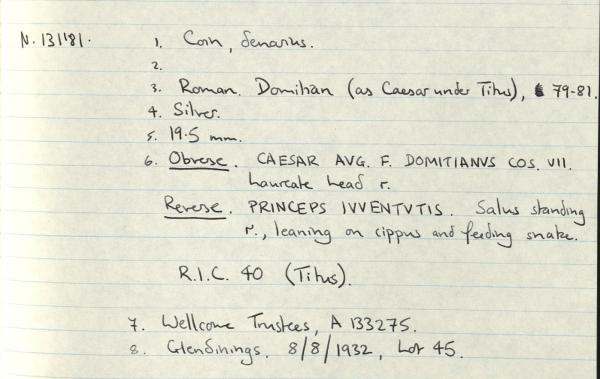 N. 131'81.
1. Coin, denarius.
2.
3. Roman. Domitian (as Caesar under Titus), 79-81.
4. Silver.
5. 19.5 mm.
6. Obverse. CAESAR AVG. F. DOMITIANVS COS. VII.
Laureate head r.
Reverse. PRINCEPS IVVENTVTIS. Salus standing
r., leaning on cippus and feeding snake.
R.I.C. 40 (Titus).
7. Wellcome Trustees, A 133275.
8. Glendinings. 8/8/1932, Lot 45.